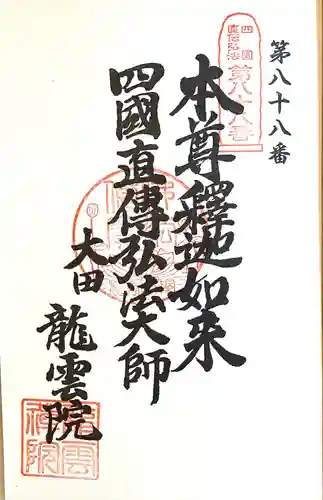 第八十八番
四國
直伝弘法
第八十八番
本尊釋迦如来
四國直傳弘法大師
大田
龍雲院